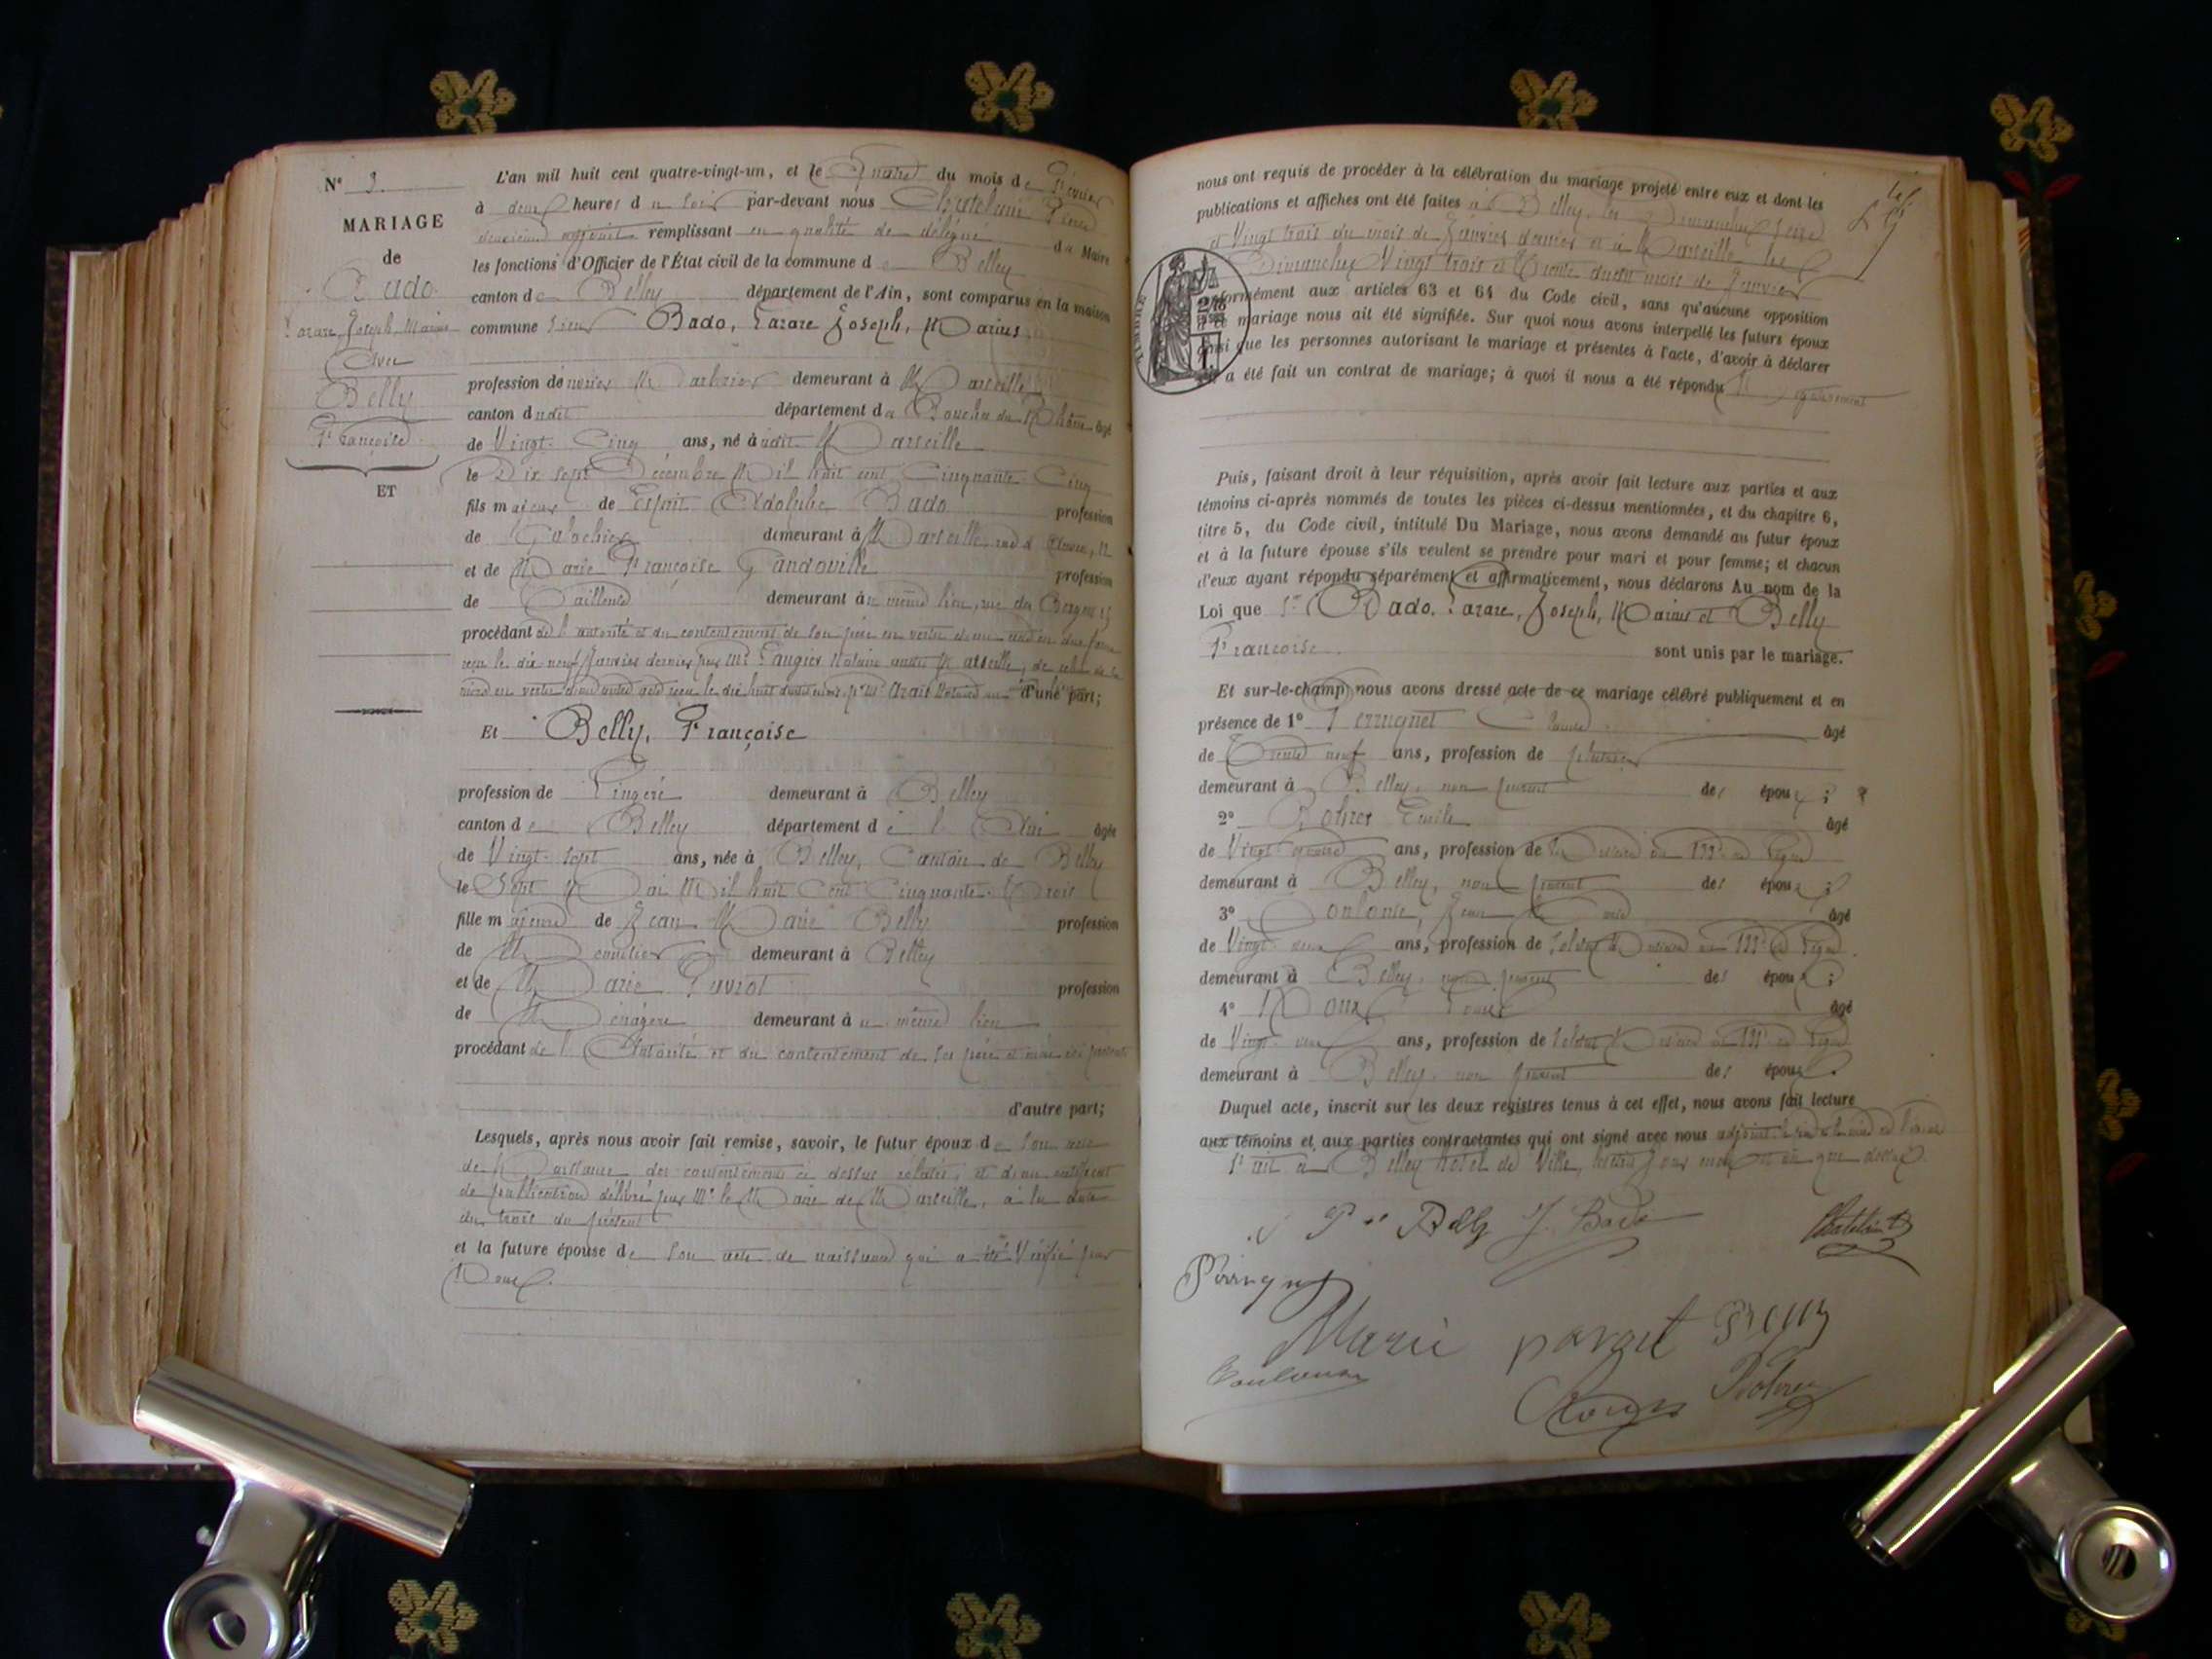 N° 9.
MARIAGE
de
Bado
Lazare, Joseph, Marius
Avec
Belly
Françoise
ET
L'an mil huit cent quatre-vingt-un, et le Quatre du mois de Février
à deux heures du soir par-devant nous Chatelain
deuxième adjoint remplissant en qualité de délégué du Maire
les fonctions d'Officier de l'État civil de la commune de Belley
canton de Belley département de l'Ain, sont comparus en la maison
commune Sieur Bado, Lazare Joseph, Marius,
profession de demeurant à Marseille
canton dudit département des Bouches du Rhône âgé
de Vingt-Cinq ans, né audit Marseille
le Dix sept Décembre Mil huit cent Cinquante Cinq
fils majeur de Esprit Adolphe Bado profession
de Galochier demeurant à Marseille, rue d
et de Marie Françoise Gandoville profession
de Tailleuse demeurant au même lieu, rue des
procédant de l'autorité et du consentement de son père en vertu d'un acte en due forme
reçu le dix neuf Janvier dernier par Me Laugier Notaire Marseille, de celui de la
d'une part;
Et Belly, Françoise
profession de Lingère demeurant à Belley
canton de Belley département de l'Ain âgée
de Vingt-sept ans, née à Belley, Canton de Belley
le Sept Mai Mil huit Cent Cinquante-Trois
fille majeure de Jean Marie Belly profession
de demeurant à Belley
et de Marie Paviot profession
de Ménagère demeurant au même lieu
procédant de l'Autorité et du consentement de ses père et mère ici présents
d'autre part;
Lesquels, après nous avoir fait remise, savoir, le futur époux de son acte
de Naissance des consentements ci dessus relatés, et d'un certificat
de publication délivré par Mr le Maire de Marseille, à la date
du trois du présent
et la future épouse de son acte de naissance qui a été Vérifié par
Nous.
nous ont requis de procéder à la célébration du mariage projeté entre eux et dont les
publications et affiches ont été faites à Belley, les Dimanches Seize
et Vingt trois du mois de Janvier dernier et à Marseille les
Dimanches Vingt trois et Trente dudit mois de Janvier
conformément aux articles 63 et 64 du Code civil, sans qu'aucune opposition
à ce mariage nous ait été signifiée. Sur quoi nous avons interpellé les futurs époux
ainsi que les personnes autorisant le mariage et présentes à l'acte, d'avoir à déclarer
s'il a été fait un contrat de mariage; à quoi il nous a été répondu Négativement
TIMBRE
Puis, faisant droit à leur réquisition, après avoir fait lecture aux parties et aux
témoins ci-après nommés de toutes les pièces ci-dessus mentionnées, et du chapitre 6,
titre 5, du Code civil, intitulé Du Mariage, nous avons demandé au futur époux
et à la future épouse s'ils veulent se prendre pour mari et pour femme; et chacun
d'eux ayant répondu séparément et affirmativement, nous déclarons Au nom de la
Loi que Sr Bado, Lazare, Joseph, Marius et Belly
Françoise. sont unis par le mariage.
Et sur-le-champ nous avons dressé acte de ce mariage célébré publiquement et en
présence de 1° Perrugnet Claude âgé
de Trente neuf ans, profession de
demeurant à Belley, non parent des époux;
2° Rohrer Emile âgé
de Vingt ans, profession de Musicien au 133e de Ligne
demeurant à Belley, non parent des époux;
3° Jean âgé
de Vingt-deux ans, profession de soldat Musicien au 133e de Ligne
demeurant à Belley, non parent des époux;
4° Roux Louis âgé
de Vingt-deux ans, profession de soldat Musicien au 133e de Ligne
demeurant à Belley, non parent des époux.
Duquel acte, inscrit sur les deux registres tenus à cet effet, nous avons fait lecture
aux témoins et aux parties contractantes qui ont signé avec nous
Fait à Belley hotel de Ville, lesdits jour, mois et an que dessus.
Belly J. Bado Chatelain
Marie Roux Rohrer